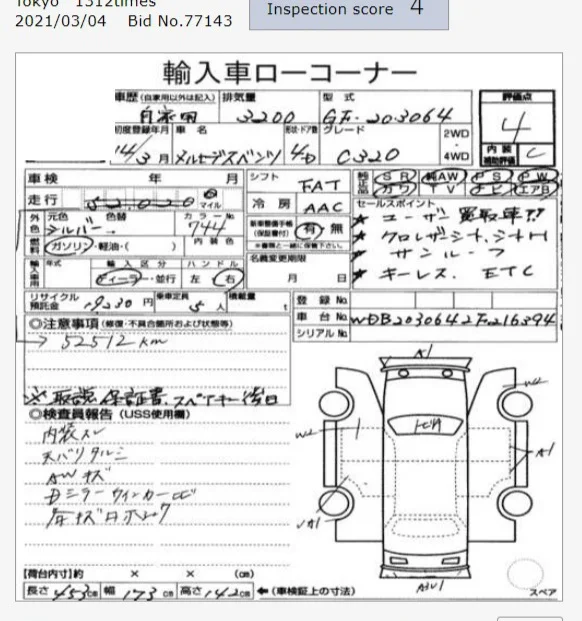 Tokyo 1312times
2021/03/04 Bid No.77143
Inspection score 4
輸入車ローコーナー
車歴 (自家用以外は記入) 排気量 型式 評価点
自家用 3200 GF-203064 4
初度登録年月 車名 形状・ドア数 グレード 2WD・4WD
14/3月 メルセデスベンツ 4D C320
内装補助評価 C
車検 年 月 シフト FAT
純正品 SR 純AW PS PW
カワ TV ナビ エアB
走行 52,020 マイル 冷房 AAC
セールスポイント
外色 元色 色替 カラーNo.
シルバー 744
新車整備手帳(保証書付) 有 無
※書類と一緒に保管下さい。
★ユーザー買取車!!
★クロレザーシート、シートH
★サンルーフ
★キーレス、ETC
燃料 ガソリン・軽油・( ) 内装色
名義変更期限
月 日
輸入車用 年式 輸入区分 ハンドル
ディーラー・並行 左 右
リサイクル預託金 円 乗車定員 5人 積載量 t
登録No.
車台No. WDB2030642F216394
シリアルNo.
◎注意事項 (修復・不具合箇所および状態等)
→ 52512km
※取説、保証書、スペアキー後日
◎検査員報告 (USS使用欄)
内装スレ
天バリタルミ
AWキズ
A1
W2
W2
A1
A1
【荷台内寸】約 × × (cm)
長さ 453cm 幅 173cm 高さ 142cm ←(車検証上の寸法)
スペア